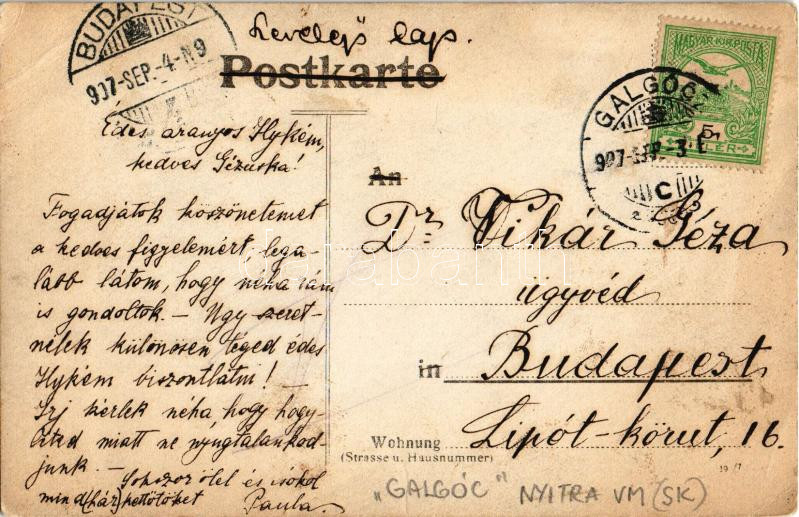 BUDAPEST
907-SEP.-4-N9
Levelező lap.
Postkarte
MAGYAR KIR. POSTA
GALGÓC
907-SEP. 3
C
Édes aranyos Ilykém,
kedves Gézuska!
An
Fogadjátok köszönetemet
a kedves figyelemért lega-
lább látom, hogy néha rám
is gondoltok. - Ugy szeret-
nélek különösen téged édes
Ilykém viszontlátni! -
Irj kérlek néha hogy hogy-
miatt ne nyugtalankod-
junk. -
Sokszor ölel és csókol
mind (hár) kettőtöket Paula.
Dr. Vikár Géza
ügyvéd
in Budapest
Lipót-körut, 16.
Wohnung
(Strasse u. Hausnummer)
"GALGÓC" NYITRA VM (SK)
darabanth